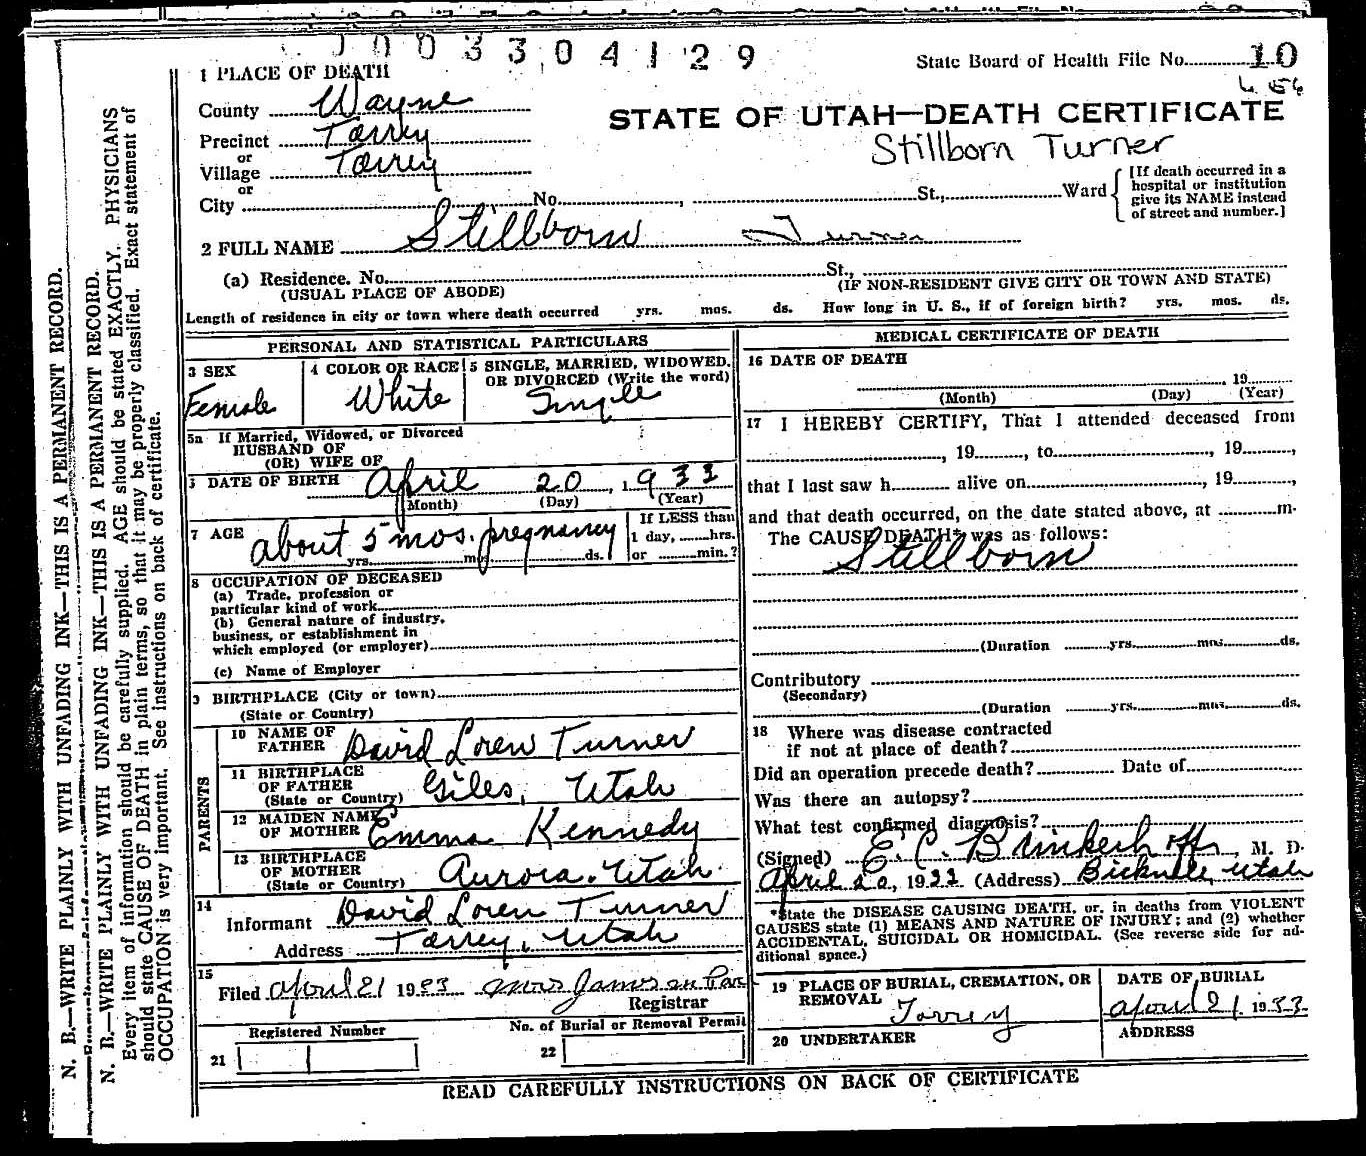 003304129
State Board of Health File No. 10
1 PLACE OF DEATH
County Wayne
STATE OF UTAH—DEATH CERTIFICATE
Precinct Torrey
Stillborn Turner
or
Village Torrey
or
City No. , St., Ward
[If death occurred in a
hospital or institution
give its NAME instead
of street and number.]
2 FULL NAME Stillborn Turner
(a) Residence. No. St.,
(USUAL PLACE OF ABODE) (IF NON-RESIDENT GIVE CITY OR TOWN AND STATE)
Length of residence in city or town where death occurred yrs. mos. ds. How long in U. S., if of foreign birth? yrs. mos. ds.
PERSONAL AND STATISTICAL PARTICULARS
3 SEX
Female
4 COLOR OR RACE
White
5 SINGLE, MARRIED, WIDOWED,
OR DIVORCED (Write the word)
Single
5a If Married, Widowed, or Divorced
HUSBAND OF
(OR) WIFE OF
DATE OF BIRTH April 20, 1933
(Month) (Day) (Year)
7 AGE about 5 mos. pregnancy
yrs. mos. ds.
If LESS than
1 day, hrs.
or min.?
8 OCCUPATION OF DECEASED
(a) Trade, profession or
particular kind of work
(b) General nature of industry,
business, or establishment in
which employed (or employer)
(c) Name of Employer
9 BIRTHPLACE (City or town)
(State or Country)
PARENTS
10 NAME OF
FATHER David Loren Turner
11 BIRTHPLACE
OF FATHER
(State or Country) Giles, Utah
12 MAIDEN NAME
OF MOTHER Emma Kennedy
13 BIRTHPLACE
OF MOTHER
(State or Country) Aurora, Utah.
14
Informant David Loren Turner
Address Torrey, Utah
15
Filed April 21 1933
Registrar
Registered Number
21
No. of Burial or Removal Permit
22
MEDICAL CERTIFICATE OF DEATH
16 DATE OF DEATH
, 19
(Month) (Day) (Year)
17 I HEREBY CERTIFY, That I attended deceased from
, 19, to, 19,
that I last saw h alive on, 19,
and that death occurred, on the date stated above, at m.
The CAUSE DEATH* was as follows:
Stillborn
(Duration yrs. mos. ds.
Contributory
(Secondary)
(Duration yrs. mos. ds.
18 Where was disease contracted
if not at place of death?
Did an operation precede death? Date of
Was there an autopsy?
What test confirmed diagnosis?
(Signed) E. C. Brinkerhoff, M. D.
April 20, 1933 (Address) Bicknell, Utah
*State the DISEASE CAUSING DEATH, or, in deaths from VIOLENT
CAUSES state (1) MEANS AND NATURE OF INJURY; and (2) whether
ACCIDENTAL, SUICIDAL OR HOMICIDAL. (See reverse side for ad-
ditional space.)
19 PLACE OF BURIAL, CREMATION, OR
REMOVAL Torrey
DATE OF BURIAL
April 21 1933
20 UNDERTAKER
ADDRESS
READ CAREFULLY INSTRUCTIONS ON BACK OF CERTIFICATE
N. B.—WRITE PLAINLY WITH UNFADING INK—THIS IS A PERMANENT RECORD.
N. B.—WRITE PLAINLY WITH UNFADING INK—THIS IS A PERMANENT RECORD.
Every item of information should be carefully supplied. AGE should be stated EXACTLY. PHYSICIANS
should state CAUSE OF DEATH in plain terms, so that it may be properly classified. Exact statement of
OCCUPATION is very important. See instructions on back of certificate.